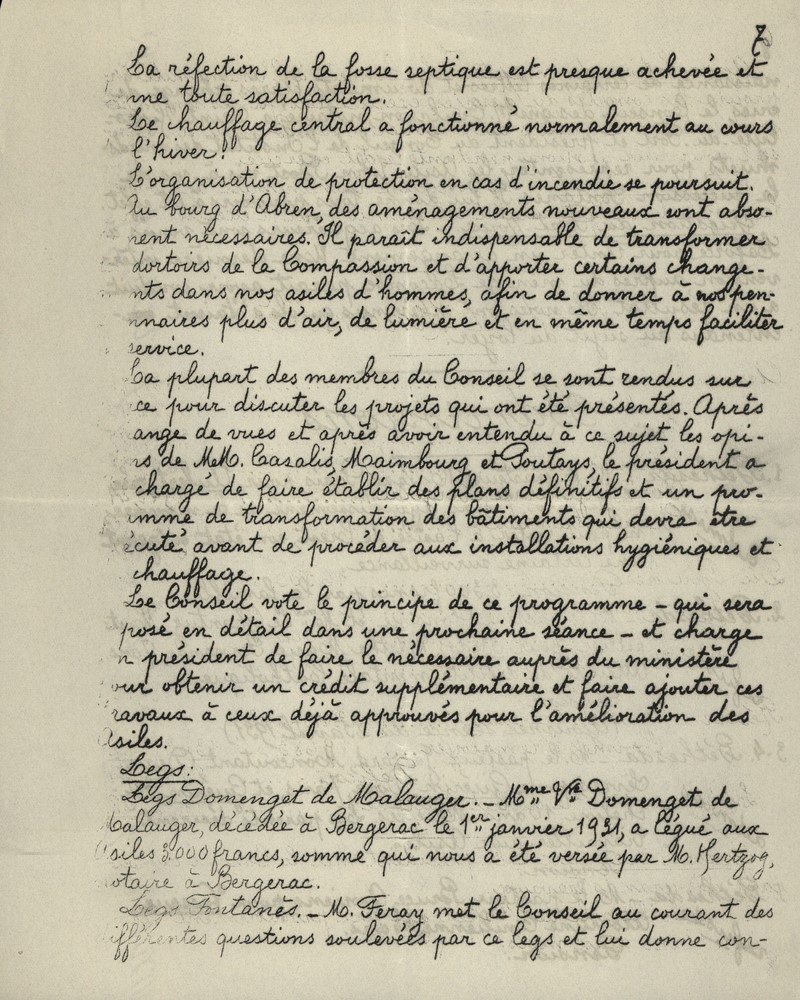 7
La réfection de la fosse septique est presque achevée et
ne toute satisfaction.
Le chauffage central a fonctionné normalement au cours
l'hiver.
L'organisation de protection en cas d'incendie se poursuit.
Au bourg d'Abren, des aménagements nouveaux sont abso-
ment nécessaires. Il paraît indispensable de transformer
dortoirs de la Compassion et d'apporter certains change-
nts dans nos asiles d'hommes, afin de donner à nos pen-
nnaires plus d'air, de lumière et en même temps faciliter
service.
La plupart des membres du Conseil se sont rendus sur
ce pour discuter les projets qui ont été présentés. Après
ange de vues et après avoir entendu à ce sujet les opi-
ns de MM. Casalis, Maimbourg et Poutays, le président a
chargé de faire établir des plans définitifs et un pro-
mme de transformation des bâtiments qui devra être
écuté avant de procéder aux installations hygiéniques et
chauffage.
Le Conseil vote le principe de ce programme - qui sera
posé en détail dans une prochaine séance - et charge
n président de faire le nécessaire auprès du ministère
our obtenir un crédit supplémentaire et faire ajouter ces
ravaux à ceux déjà approuvés pour l'amélioration des
Asiles.
Legs:
Legs Domenget de Malauger. - Mme Vve Domenget de
Malauger, décédée à Bergerac le 1er janvier 1931, a légué aux
Asiles 3.000 francs, somme qui nous a été versée par M. Hertzog,
notaire à Bergerac.
Legs Fontanès. - M. Feray met le Conseil au courant des
ifférentes questions soulevées par ce legs et lui donne con-